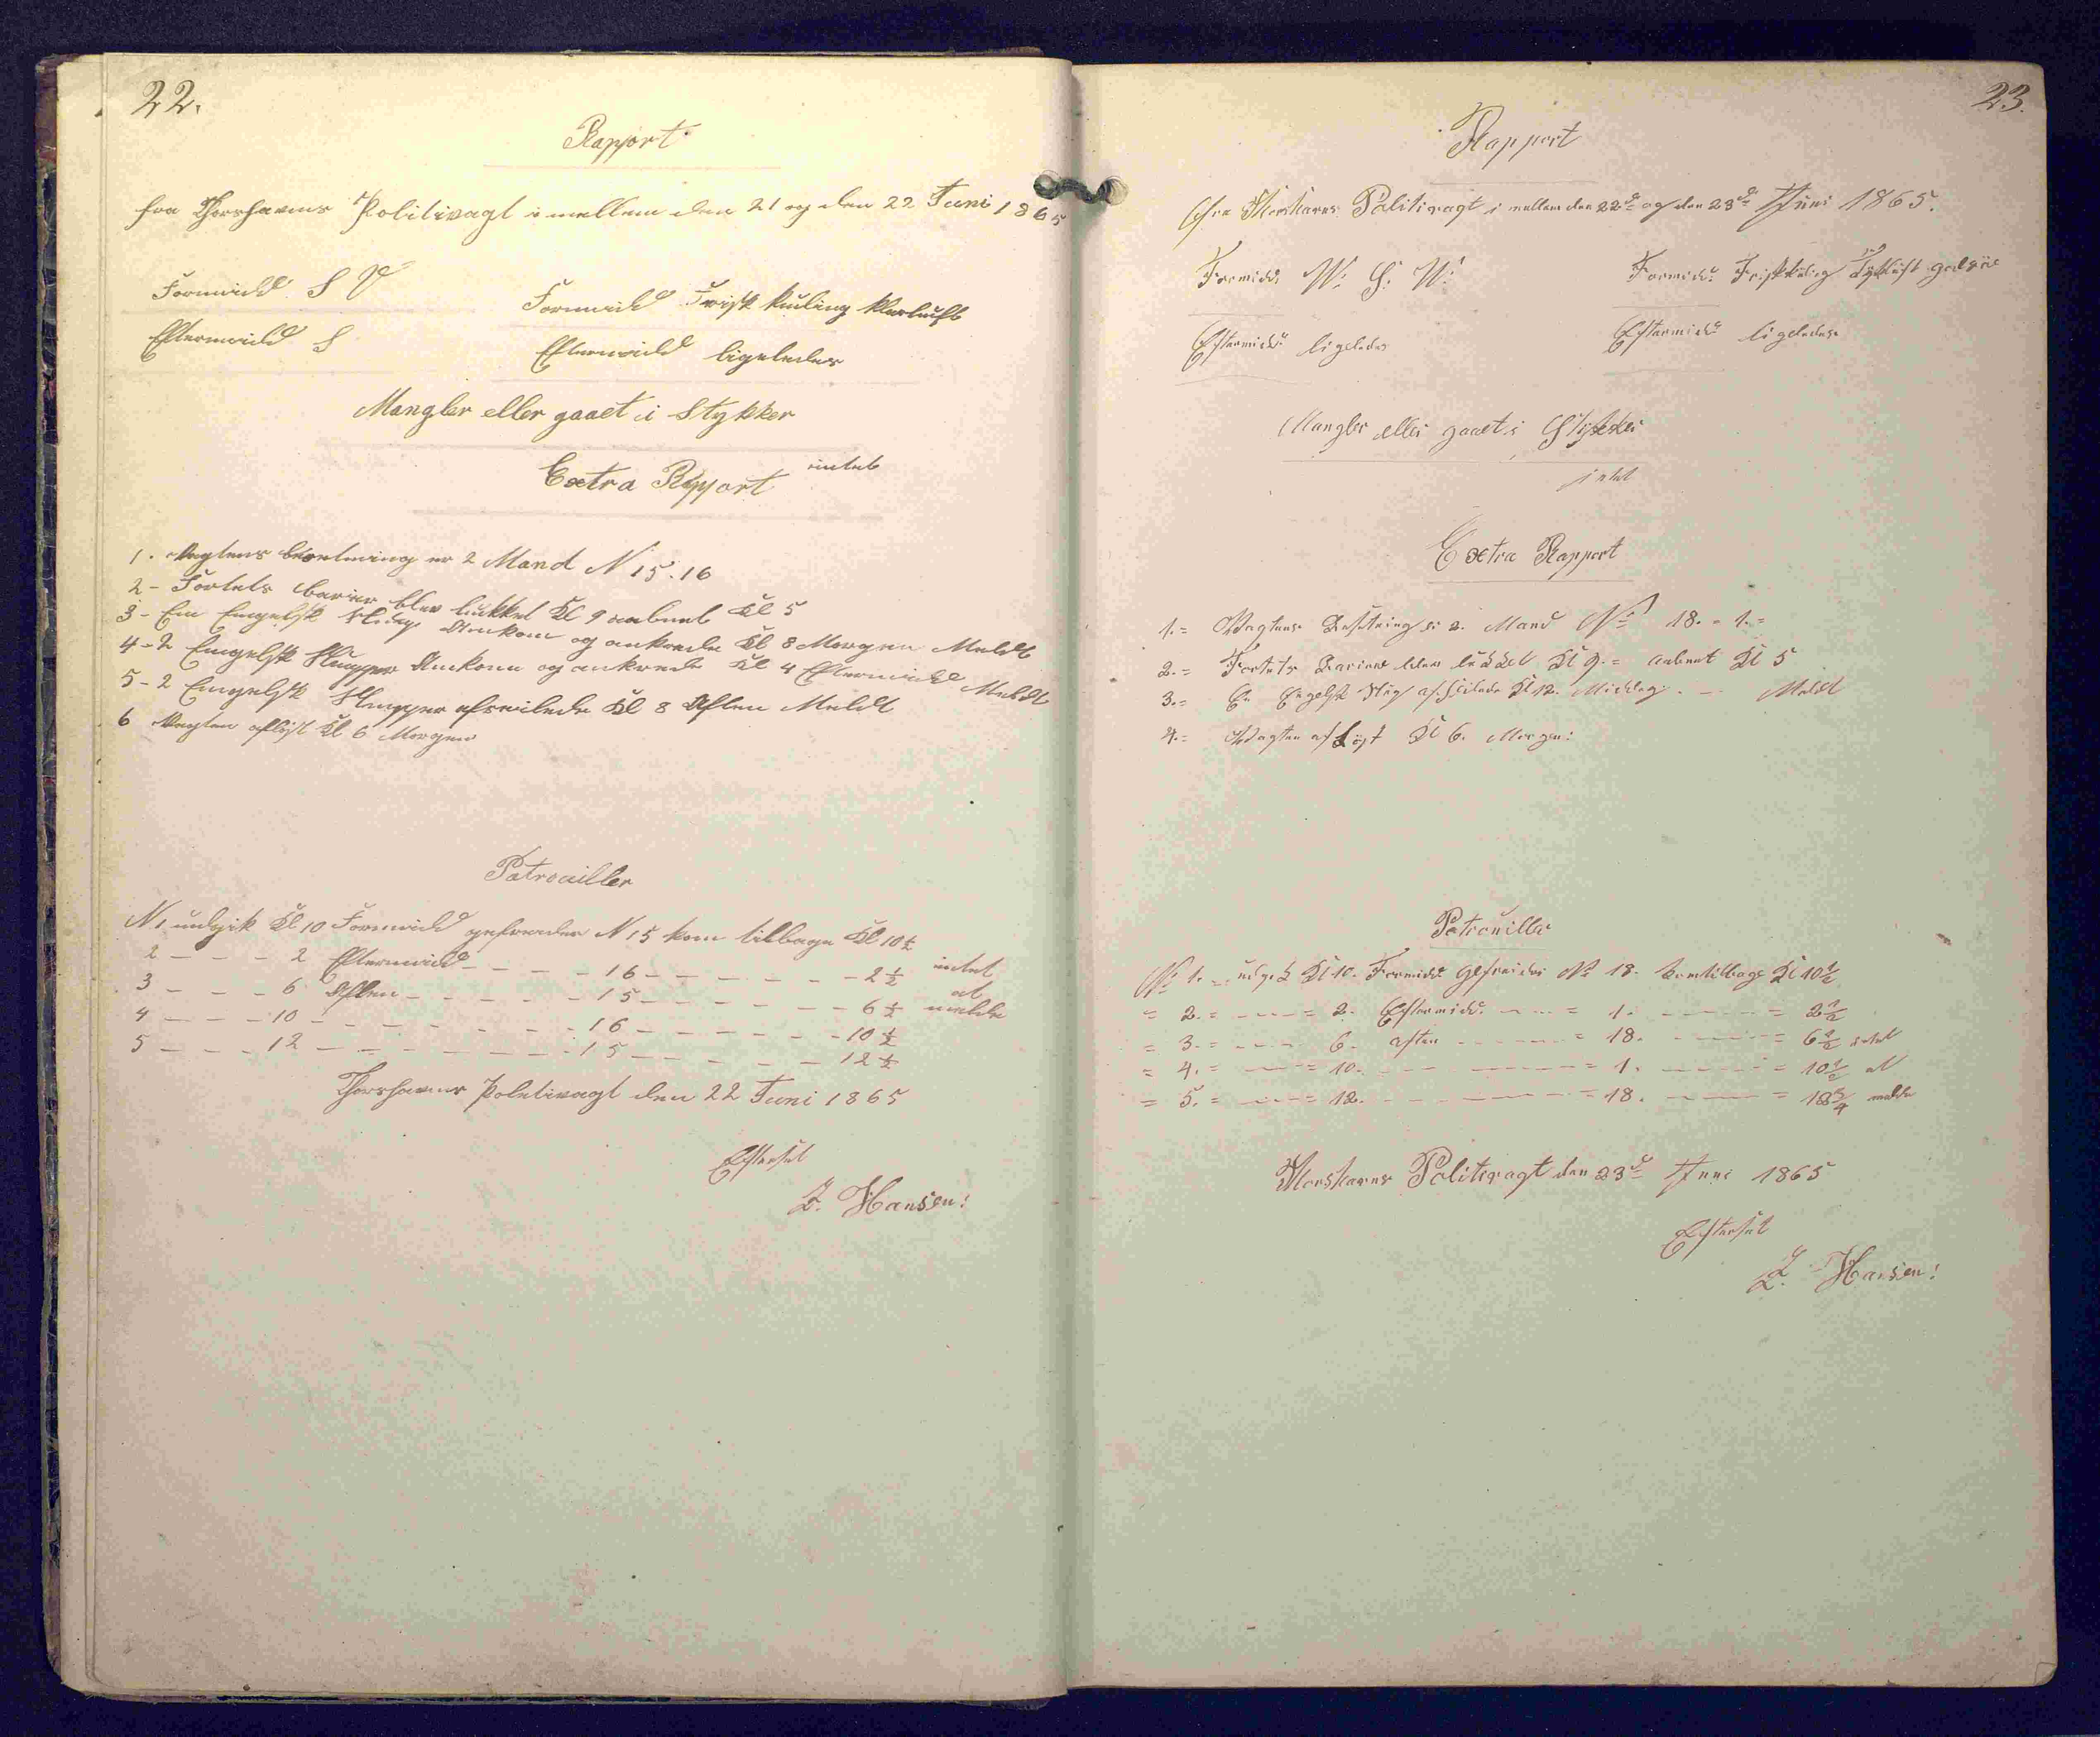 22.
Rapport
fra Thorshavns Politivagt imellem den 21 og den 22 Juni 1865
Formidd S V
Formidd Frisk kuling klarluft
Eftermidd S
Eftermidd ligeledes
Mangler eller gaaet i Stykker
intet
Extra Rapport
1. Vagtens besetning er 2 Mand N 15. 16
2 - Fortets barier blev lukket Kl 9 aabnet Kl 5
3 - Een Engelsk Slup Ankom og ankrede Kl 8 Morgen Meldt
4 - 2 Engelsk Slupper Ankom og ankrede Kl 4 Eftermidd Meldt
5 - 2 Engelsk Slupper afseilede Kl 8 Aften Meldt
6 Vagten aflöst Kl 6 Morgen
Patrouiller
N 1 udgik Kl 10 Formidd gefreider N 15 kom tilbage Kl 10 ½
2 - - - 2 Eftermidd - - - - 16 - - - - - - 2 ½ intet
3 - - - 6 Aften - - - - - 15 - - - - - - 6 ½ at melde
4 - - - 10 - - - - - - - - 16 - - - - - - 10 ½
5 - - - 12 - - - - - - - - 15 - - - - - - 12 ½
Thorshavns Politivagt den 22 Juni 1865
Efterset
Z. Hansen!
23.
Rapport
fra Thorshavns Politivagt i mellem den 22d og den 23d Juni 1865.
Formidd. W. S. W.
Formidd. Friskkuling Tykluft
Eftermidd. ligeledes
Eftermidd. ligeledes
Mangler eller gaaet i Stykker
intet
Extra Rapport
1. = Vagtens Besetning er 2. Mand No 18. = 1. =
2. = Fortets Bariere blev lukket Kl 9. = aabnet Kl 5
3. = En Engelsk Slup afseilede Kl 12. Middag. - Meldt
4. = Vagten aflöst Kl 6. Morgen:
Patrouiller
No 1. = udgik Kl 10. Formidd. Gefreider No 18. kom tilbage Kl 10 ½
= 2. = - - - = 2. Eftermidd. - - - = 1. - - - = 2 ½
= 3. = - - - 6. Aften - - - = 18. - - - = 6 ½ intet
= 4. = - - = 10. - - - - - - = 1. - - - = 10 ½ at
= 5. = - - = 12. - - - - - - = 18. - - - = 12 ¾ melde
Thorshavns Politivagt den 23d Juni 1865
Efterset
Z. Hansen!